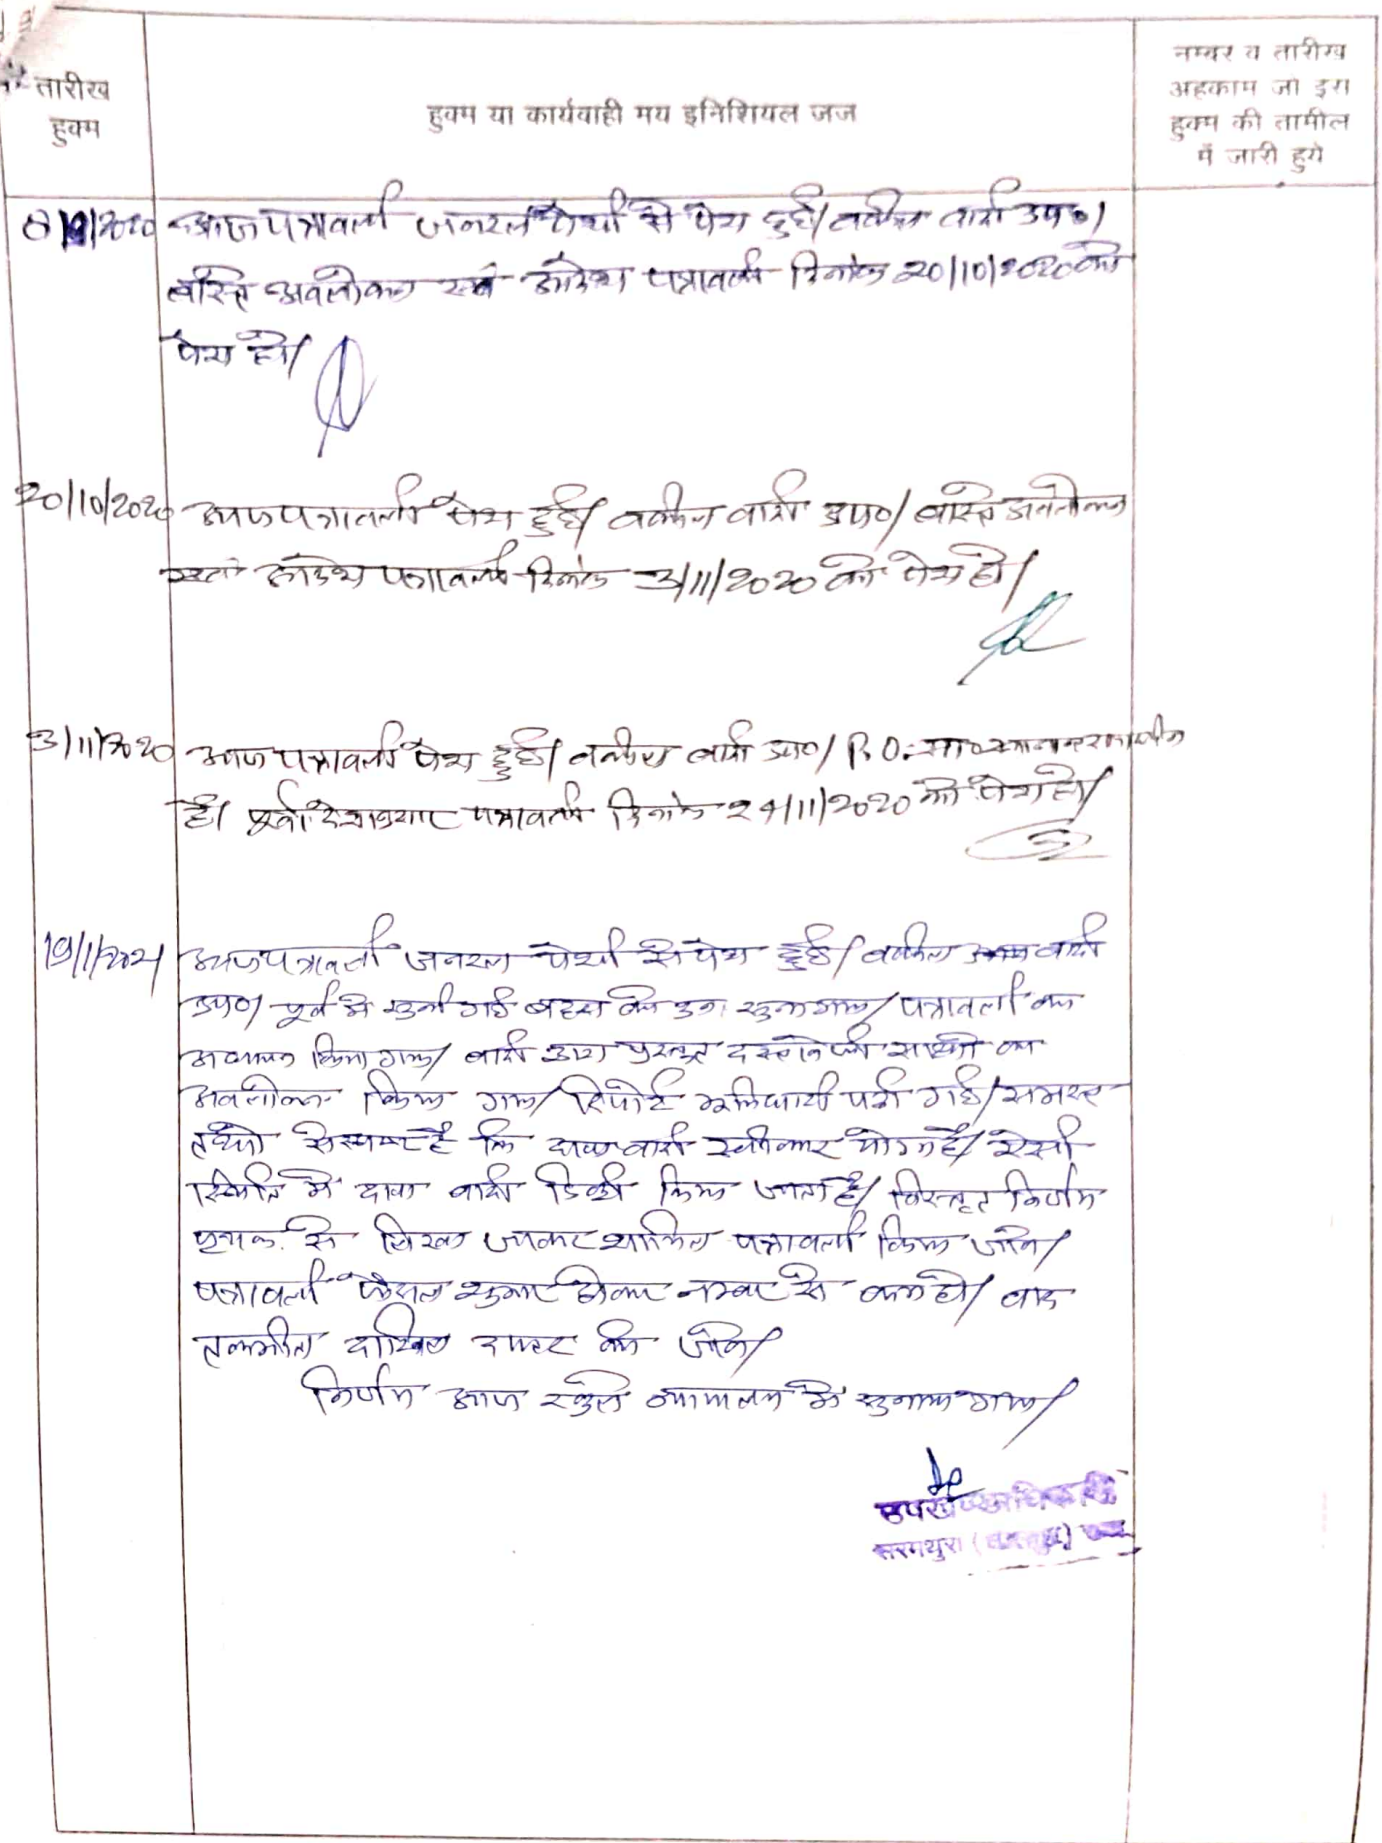 तारीख
हुक्म
हुक्म या कार्यवाही मय इनिशियल जज
नम्बर व तारीख
अहकाम जो इस
हुक्म की तामील
में जारी हुये
आज पत्रावली जनरल पेशी से पेश हुई/ वकील वादी उप०/
वास्ते अवलोकन एवं आदेश पत्रावली दिनांक 20/10/2020 को
पेश हो/
20/10/2020 आज पत्रावली पेश हुई/ वकील वादी उप०/ वास्ते अवलोकन
एवं आदेश पत्रावली दिनांक 3/11/2020 को पेश हो/
3/11/2020 आज पत्रावली पेश हुई/ वकील वादी उप०/ P.O.
है/ पूर्व आदेशानुसार पत्रावली दिनांक 24/11/2020 को पेश हो/
19/1/2021 आज पत्रावली जनरल पेशी से पेश हुई/ वकील वादी
उप०/ पूर्व में सुनी गई बहस को सुना गया/ पत्रावली का
अध्ययन किया गया/ वादी द्वारा प्रस्तुत दस्तावेजी साक्ष्यों का
अवलोकन किया गया/ रिपोर्ट पढी गई/ समस्त
तथ्यों से स्पष्ट है कि वादी स्वीकार योग्य है/ ऐसी
स्थिति में दावा वादी डिक्री किया जाता है/ विस्तृत निर्णय
पृथक से लिखा जाकर शामिल पत्रावली किया जावे/
पत्रावली फैसल शुमार होकर नम्बर से कम हो/ बाद
तकमील दाखिल दफ्तर की जावे/
निर्णय आज खुले न्यायालय में सुनाया गया/
उपखण्ड अधिकारी
सरमथुरा